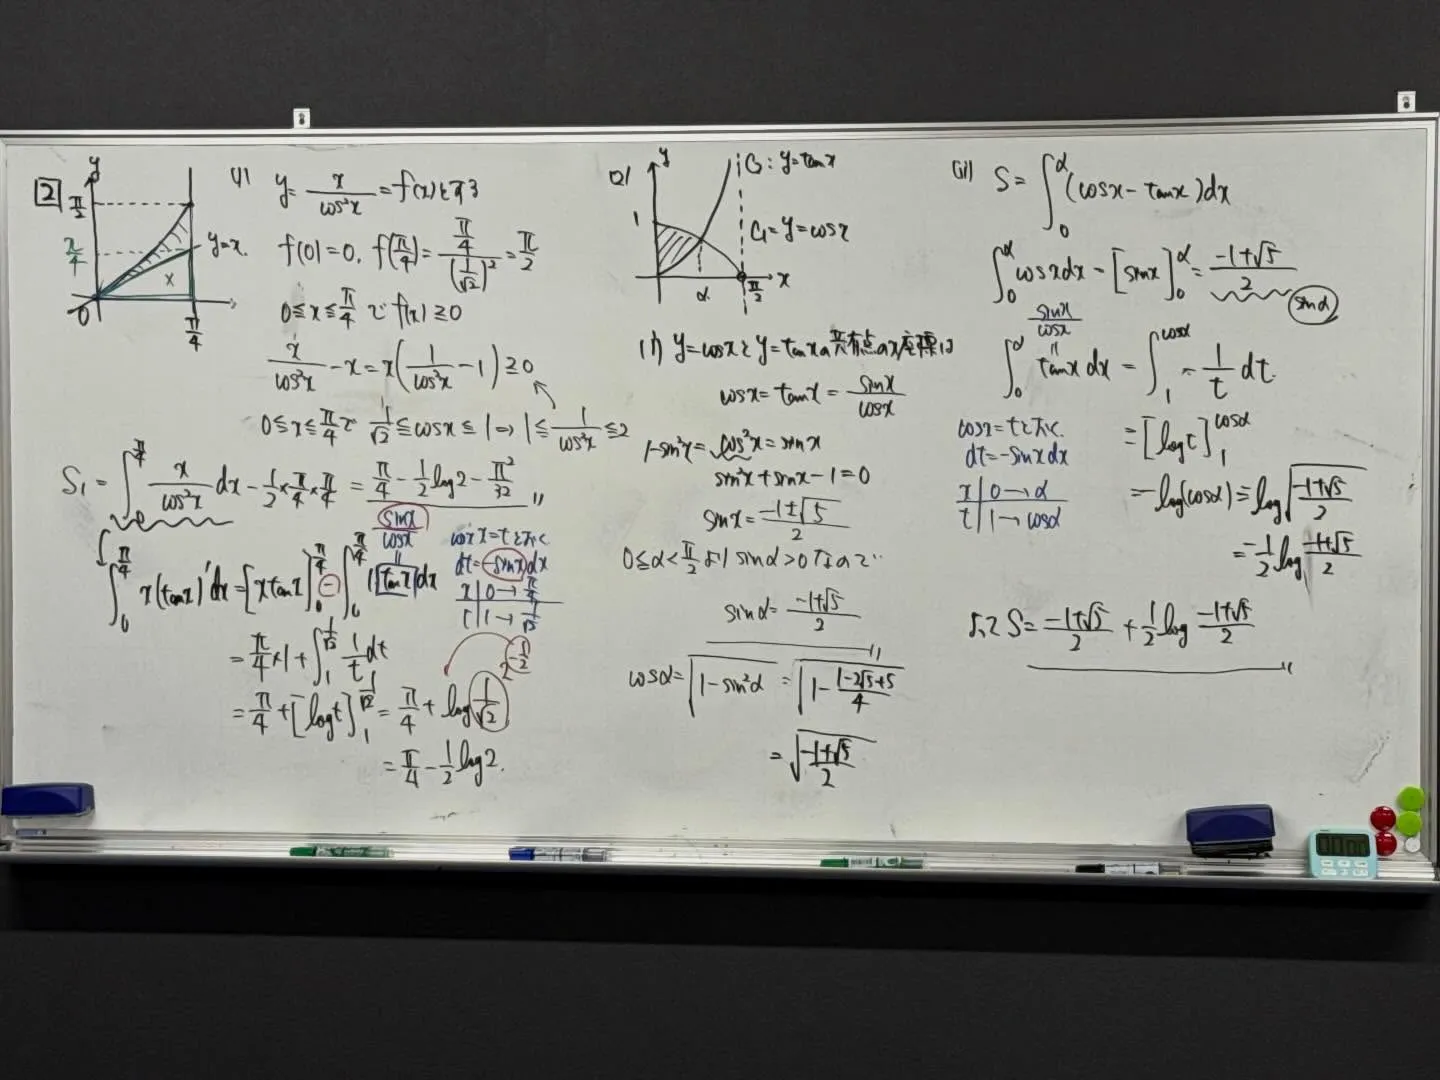 [2]
y
π/2
π/4
y=x
x
0
π/4
(1)
y = x/cos²x = f(x)とする
f(0)=0, f(π/4) = (π/4)/(1/√2)² = π/2
0≦x≦π/4 で f(x)≧0
x/cos²x - x = x(1/cos²x - 1) ≧0
0≦x≦π/4で 1/√2≦cosx≦1 ⇒ 1≦1/cos²x≦2
S₁ = ∫₀^{π/4} x/cos²x dx - 1/2×π/4×π/4 = π/4 - 1/2 log2 - π²/32 〃
∫₀^{π/4} x(tanx)'dx = [xtanx]₀^{π/4} - ∫₀^{π/4} 1·tanx dx
sinx/cosx
=
cosx=tとおく
dt=-sinxdx
x | 0→π/4
t | 1→1/√2
= π/4×1 + ∫₁^{1/√2} 1/t dt
2^{-1/2}
= π/4 + [logt]₁^{1/√2} = π/4 + log(1/√2)
= π/4 - 1/2 log2.
(2)
y
C₂: y=tanx
1
C₁=y=cosx
α
π/2
x
(i) y=cosxとy=tanxの共有点のx座標は
cosx=tanx=sinx/cosx
1-sin²x=cos²x=sinx
sin²x+sinx-1=0
sinx=(-1±√5)/2
0≦α<π/2より sinα>0なので
sinα=(-1+√5)/2 〃
cosα=√(1-sin²α) = √(1-(1-2√5+5)/4)
= √((-1+√5)/2)
(ii)
S=∫₀^α (cosx-tanx)dx
∫₀^α cosxdx = [sinx]₀^α = (-1+√5)/2
sinα
sinx/cosx
=
∫₀^α tanxdx = ∫₁^{cosα} -1/t dt
cosx=tとおく
dt=-sinxdx
x | 0→α
t | 1→cosα
=[logt]₁^{cosα}
=-log(cosα)=log√((-1+√5)/2)
=-1/2 log (-1+√5)/2
よって S=(-1+√5)/2 + 1/2 log (-1+√5)/2 〃